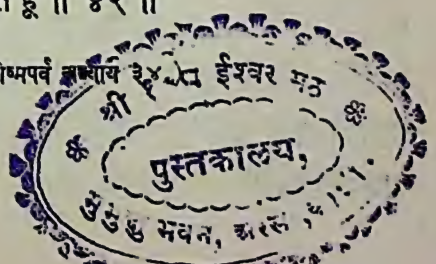 हूँ॥ ४१॥
ष्मपर्व अध्याय ३४
श्री ईश्वर मठ
पुस्तकालय,
मुमुक्षु भवन,